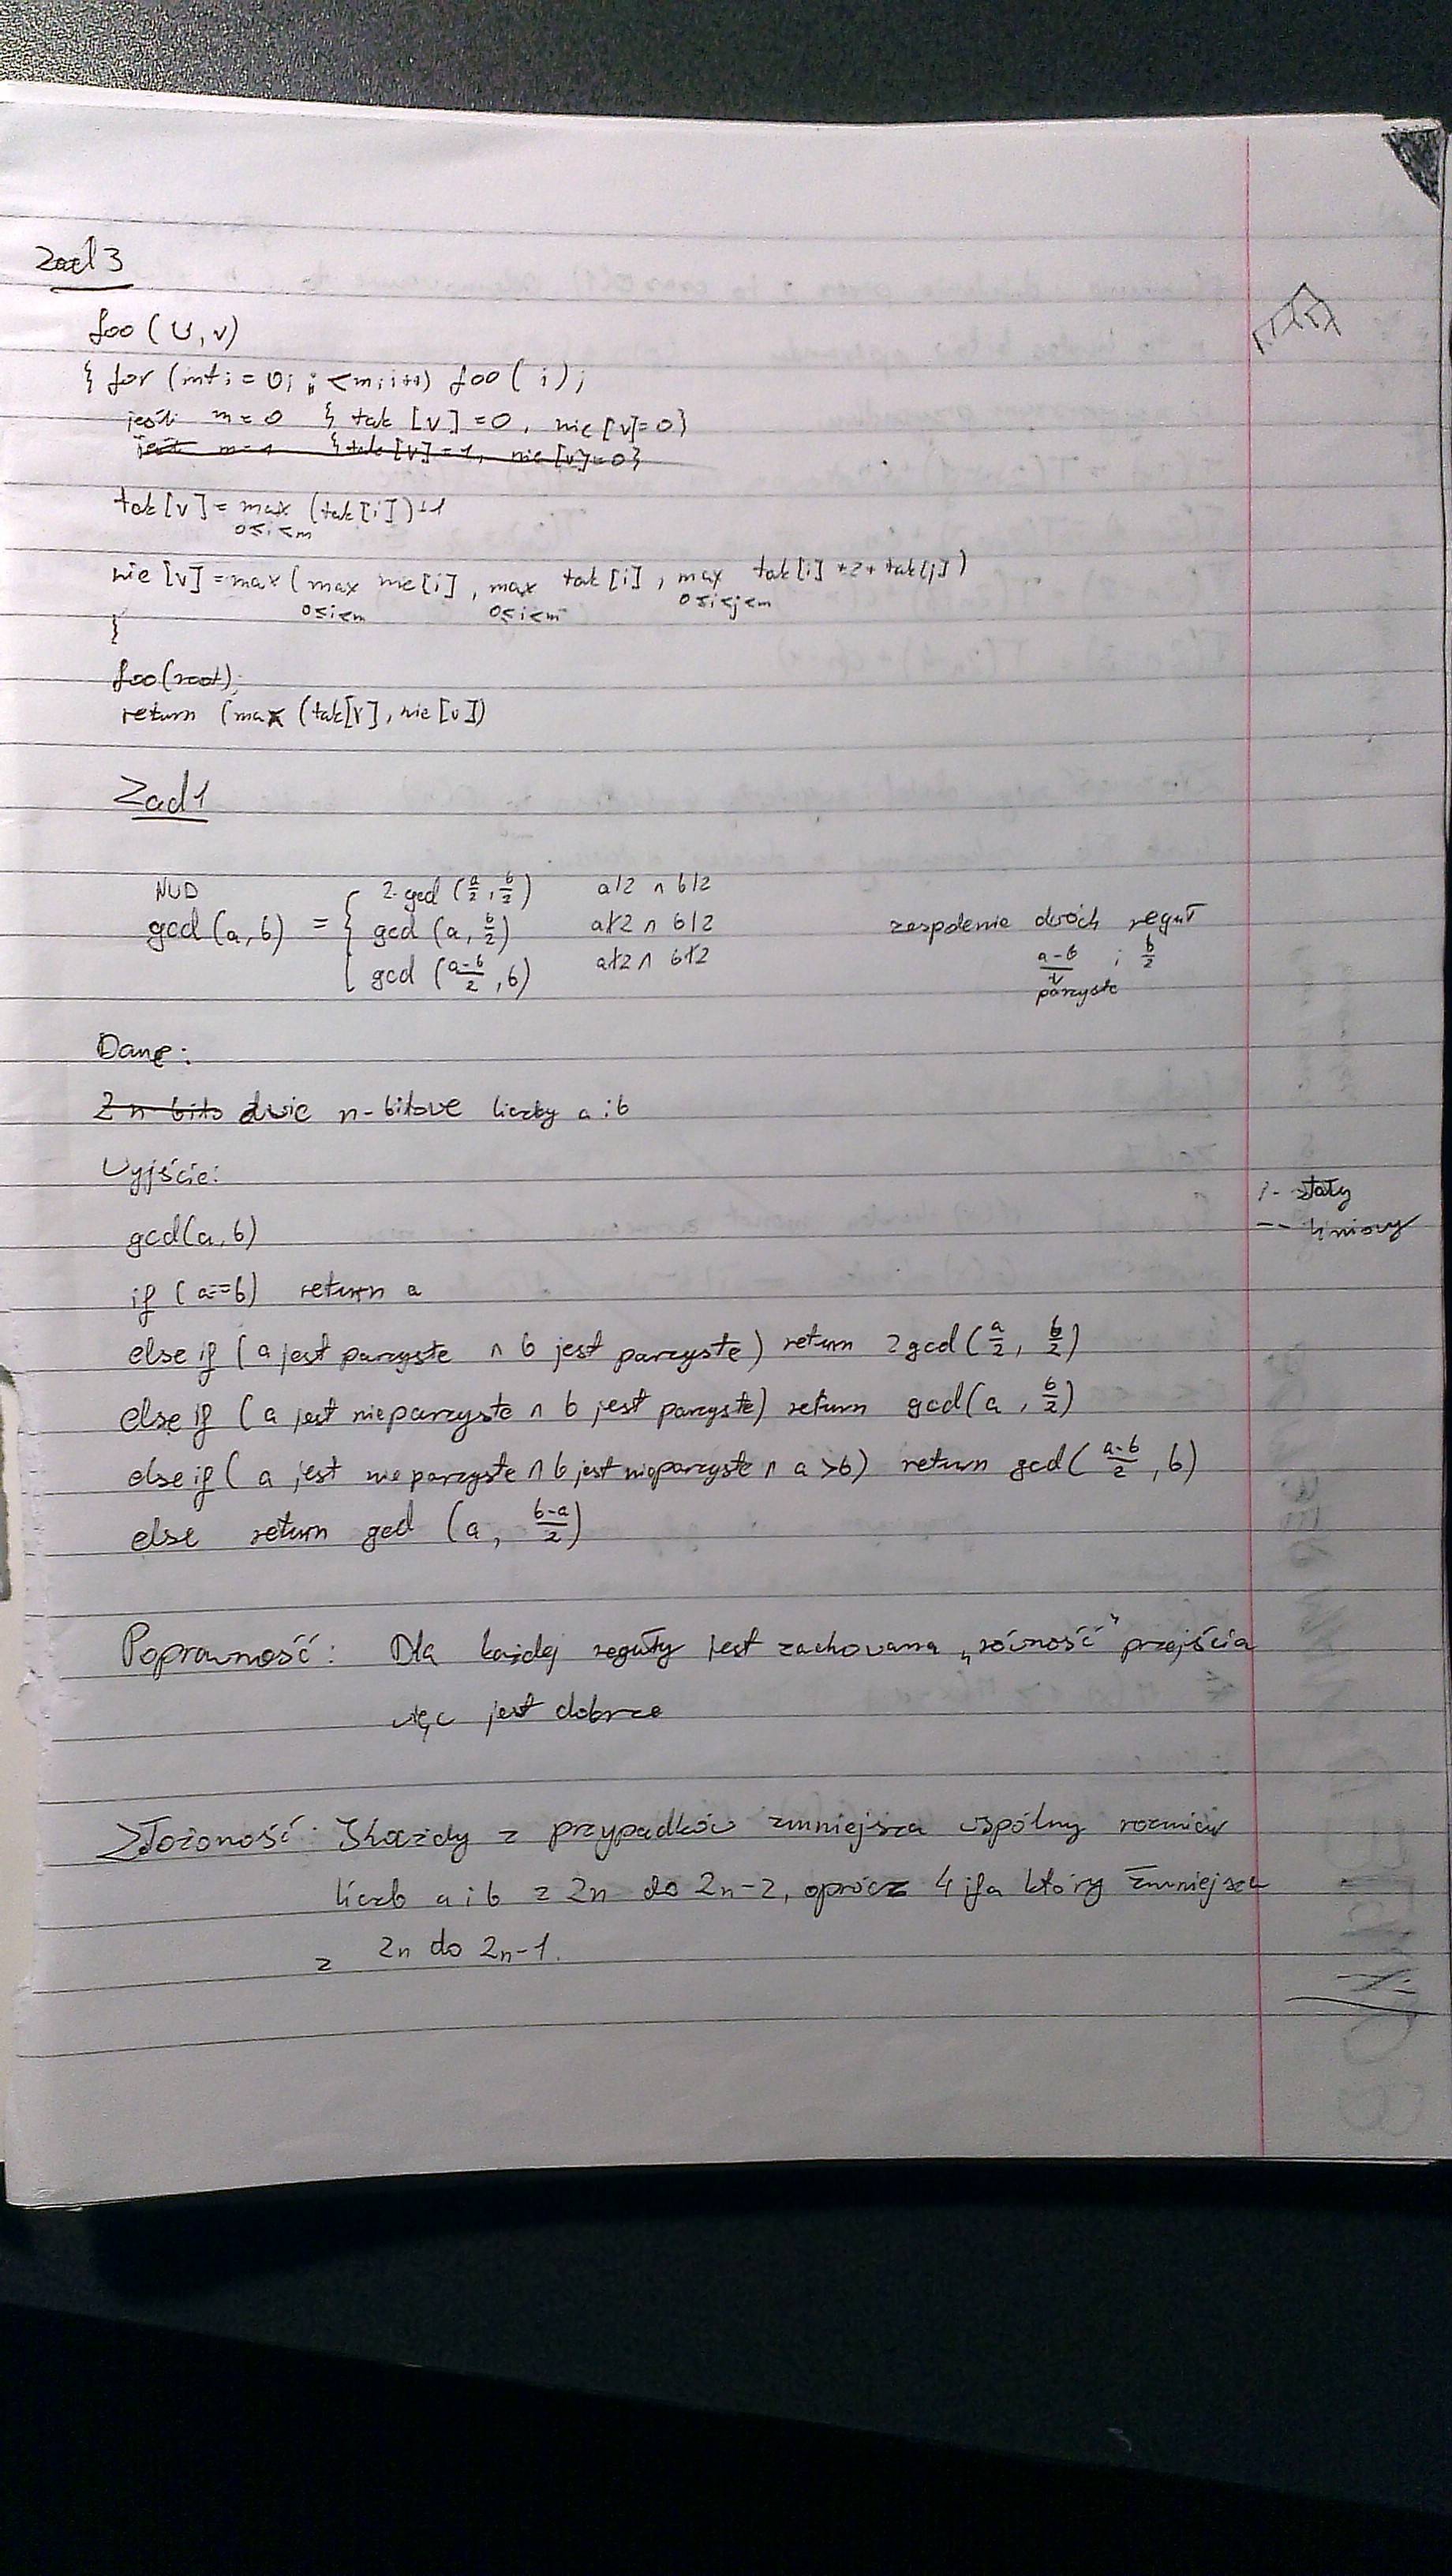 Zad 3
foo (U, v)
{ for (int i = 0; i < m; i++) foo ( i );
jeśli m = 0 { tak [v] = 0, nie [v] = 0 }
jeśli m = 1 { tak [v] = 1, nie [v] = 0 }
tak [v] = max (tak [i]) + 1
0≤i<m
nie [v] = max ( max nie [i] , max tak [i] , max tak [i] + 2 + tak [j] )
0≤i<m 0≤i<m 0≤i<j<m
}
foo (root);
return (max (tak [v] , nie [v])
Zad 1
NWD
gcd (a, b) = { 2·gcd (a/2, b/2) a|2 ∧ b|2
gcd (a, b/2) a∤2 ∧ b|2
gcd ((a-b)/2 , b) a∤2 ∧ b∤2
zespolenie dwóch reguł
a-b ; b/2
parzyste
Dane:
2 n-bito dwie n-bitowe liczby a i b
Wyjście:
i - stały
-- liniowy
gcd(a, b)
if (a==b) return a
else if (a jest parzyste ∧ b jest parzyste) return 2gcd (a/2, b/2)
else if (a jest nieparzyste ∧ b jest parzyste) return gcd (a , b/2)
else if (a jest nieparzyste ∧ b jest nieparzyste ∧ a > b) return gcd ((a-b)/2 , b)
else return gcd (a, (b-a)/2)
Poprawność: Dla każdej reguły jest zachowana „równość” przejścia
więc jest dobrze
Złożoność: Każdy z przypadków zmniejsza wspólny rozmiar
liczb a i b z 2n do 2n-2, oprócz 4 ifa który zmniejsza
z 2n do 2n-1.